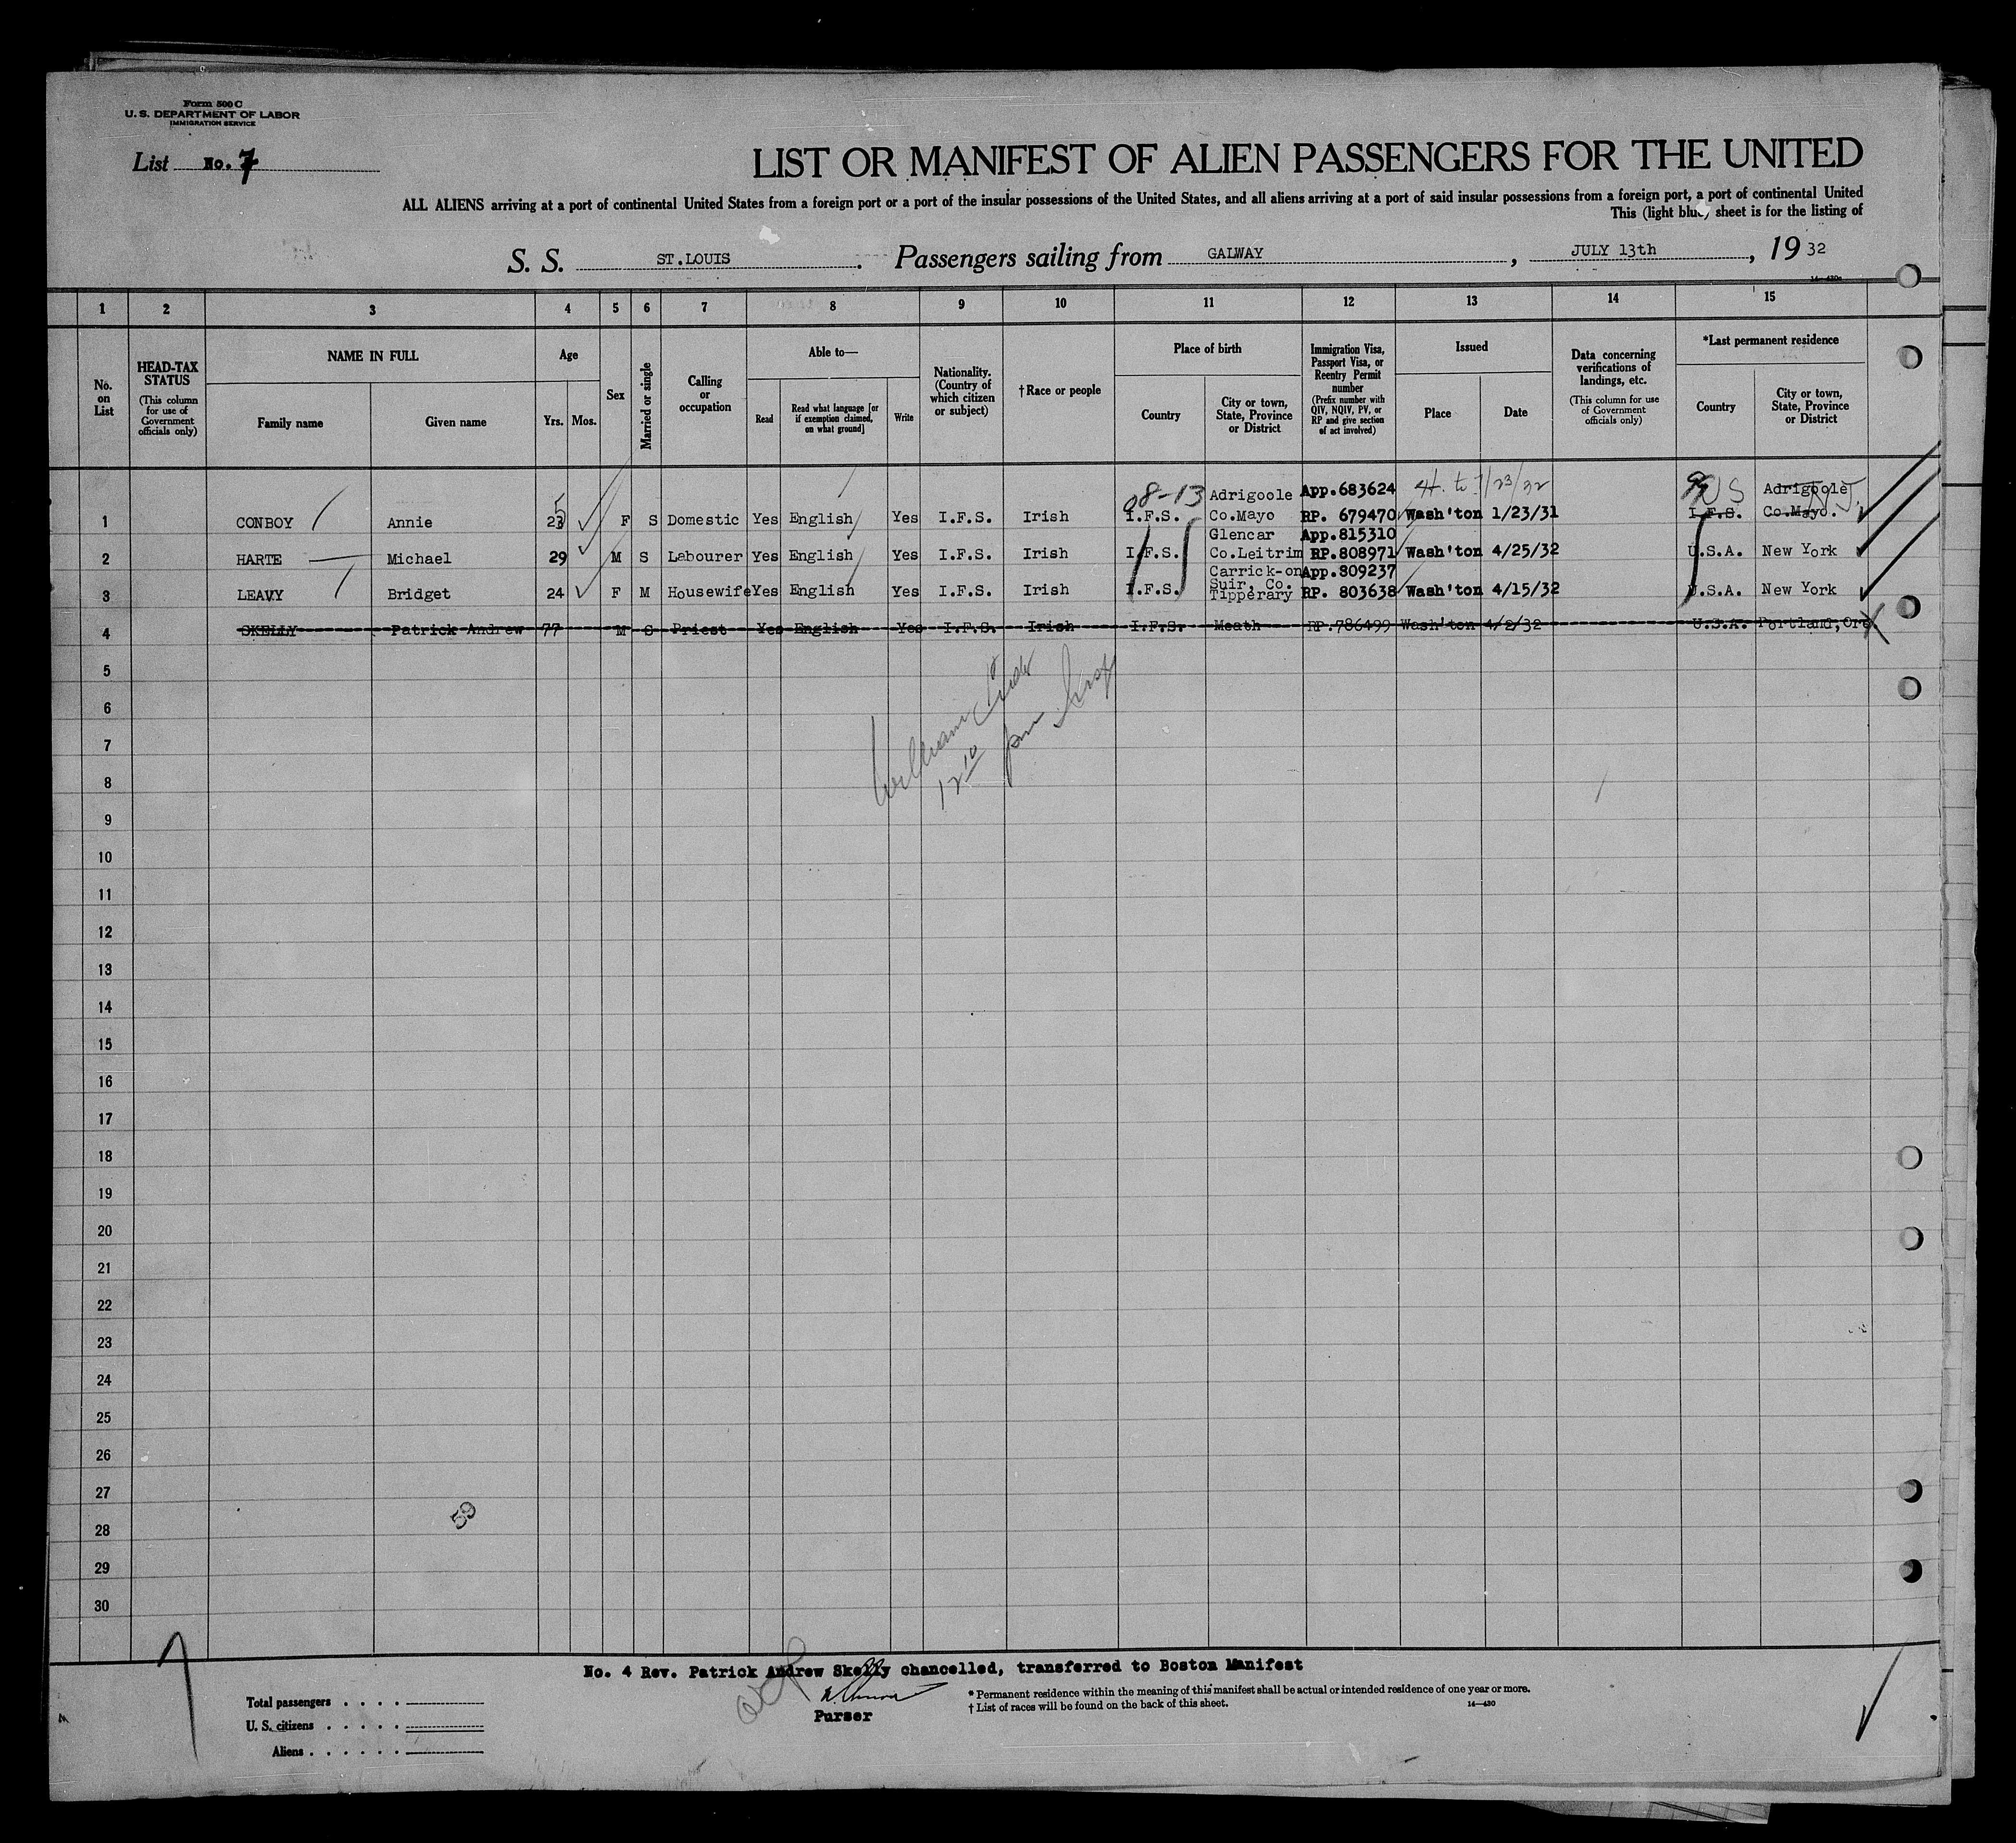 Form 500 C
U. S. DEPARTMENT OF LABOR
IMMIGRATION SERVICE
List No. 7
LIST OR MANIFEST OF ALIEN PASSENGERS FOR THE UNITED
ALL ALIENS arriving at a port of continental United States from a foreign port or a port of the insular possessions of the United States, and all aliens arriving at a port of said insular possessions from a foreign port, a port of continental United
This (light blue) sheet is for the listing of
S. S. ST.LOUIS. Passengers sailing from GALWAY, JULY 13th, 19 32
14—430a
1 2 3 4 5 6 7 8 9 10 11 12 13 14 15
No. on List
HEAD-TAX STATUS (This column for use of Government officials only)
NAME IN FULL
Family name
Given name
Age
Yrs.
Mos.
Sex
Married or single
Calling or occupation
Able to—
Read
Read what language [or if exemption claimed, on what ground]
Write
Nationality. (Country of which citizen or subject)
†Race or people
Place of birth
Country
City or town, State, Province or District
Immigration Visa, Passport Visa, or Reentry Permit number (Prefix number with QIV, NQIV, PV, or RP and give section of act involved)
Issued
Place
Date
Data concerning verifications of landings, etc. (This column for use of Government officials only)
*Last permanent residence
Country
City or town, State, Province or District
5 08-13 Adrigoole App.683624 1/23/32 US Adrigoole N.J.
1 CONBOY Annie 23 F S Domestic Yes English Yes I.F.S. Irish I.F.S. Co.Mayo RP. 679470 Wash'ton 1/23/31 I.F.S. Co.Mayo.
Glencar App.815310
2 HARTE Michael 29 M S Labourer Yes English Yes I.F.S. Irish I.F.S. Co.Leitrim RP.808971 Wash'ton 4/25/32 U.S.A. New York
Carrick-on App.809237
3 LEAVY Bridget 24 F M Housewife Yes English Yes I.F.S. Irish I.F.S. Suir, Co. Tipperary RP. 803638 Wash'ton 4/15/32 U.S.A. New York
4 SKELLY Patrick Andrew 77 M S Priest Yes English Yes I.F.S. Irish I.F.S. Meath RP.786499 Wash'ton 4/2/32 U.S.A. Portland, Ore.
5
6
William
7
8
9
10
11
12
13
14
15
16
17
18
19
20
21
22
23
24
25
26
27
28
59
29
30
No. 4 Rev. Patrick Andrew Skelly chancelled, transferred to Boston Manifest
Purser
Total passengers . . . .
U. S. citizens . . . . .
Aliens . . . . . .
* Permanent residence within the meaning of this manifest shall be actual or intended residence of one year or more.
† List of races will be found on the back of this sheet.
14—430